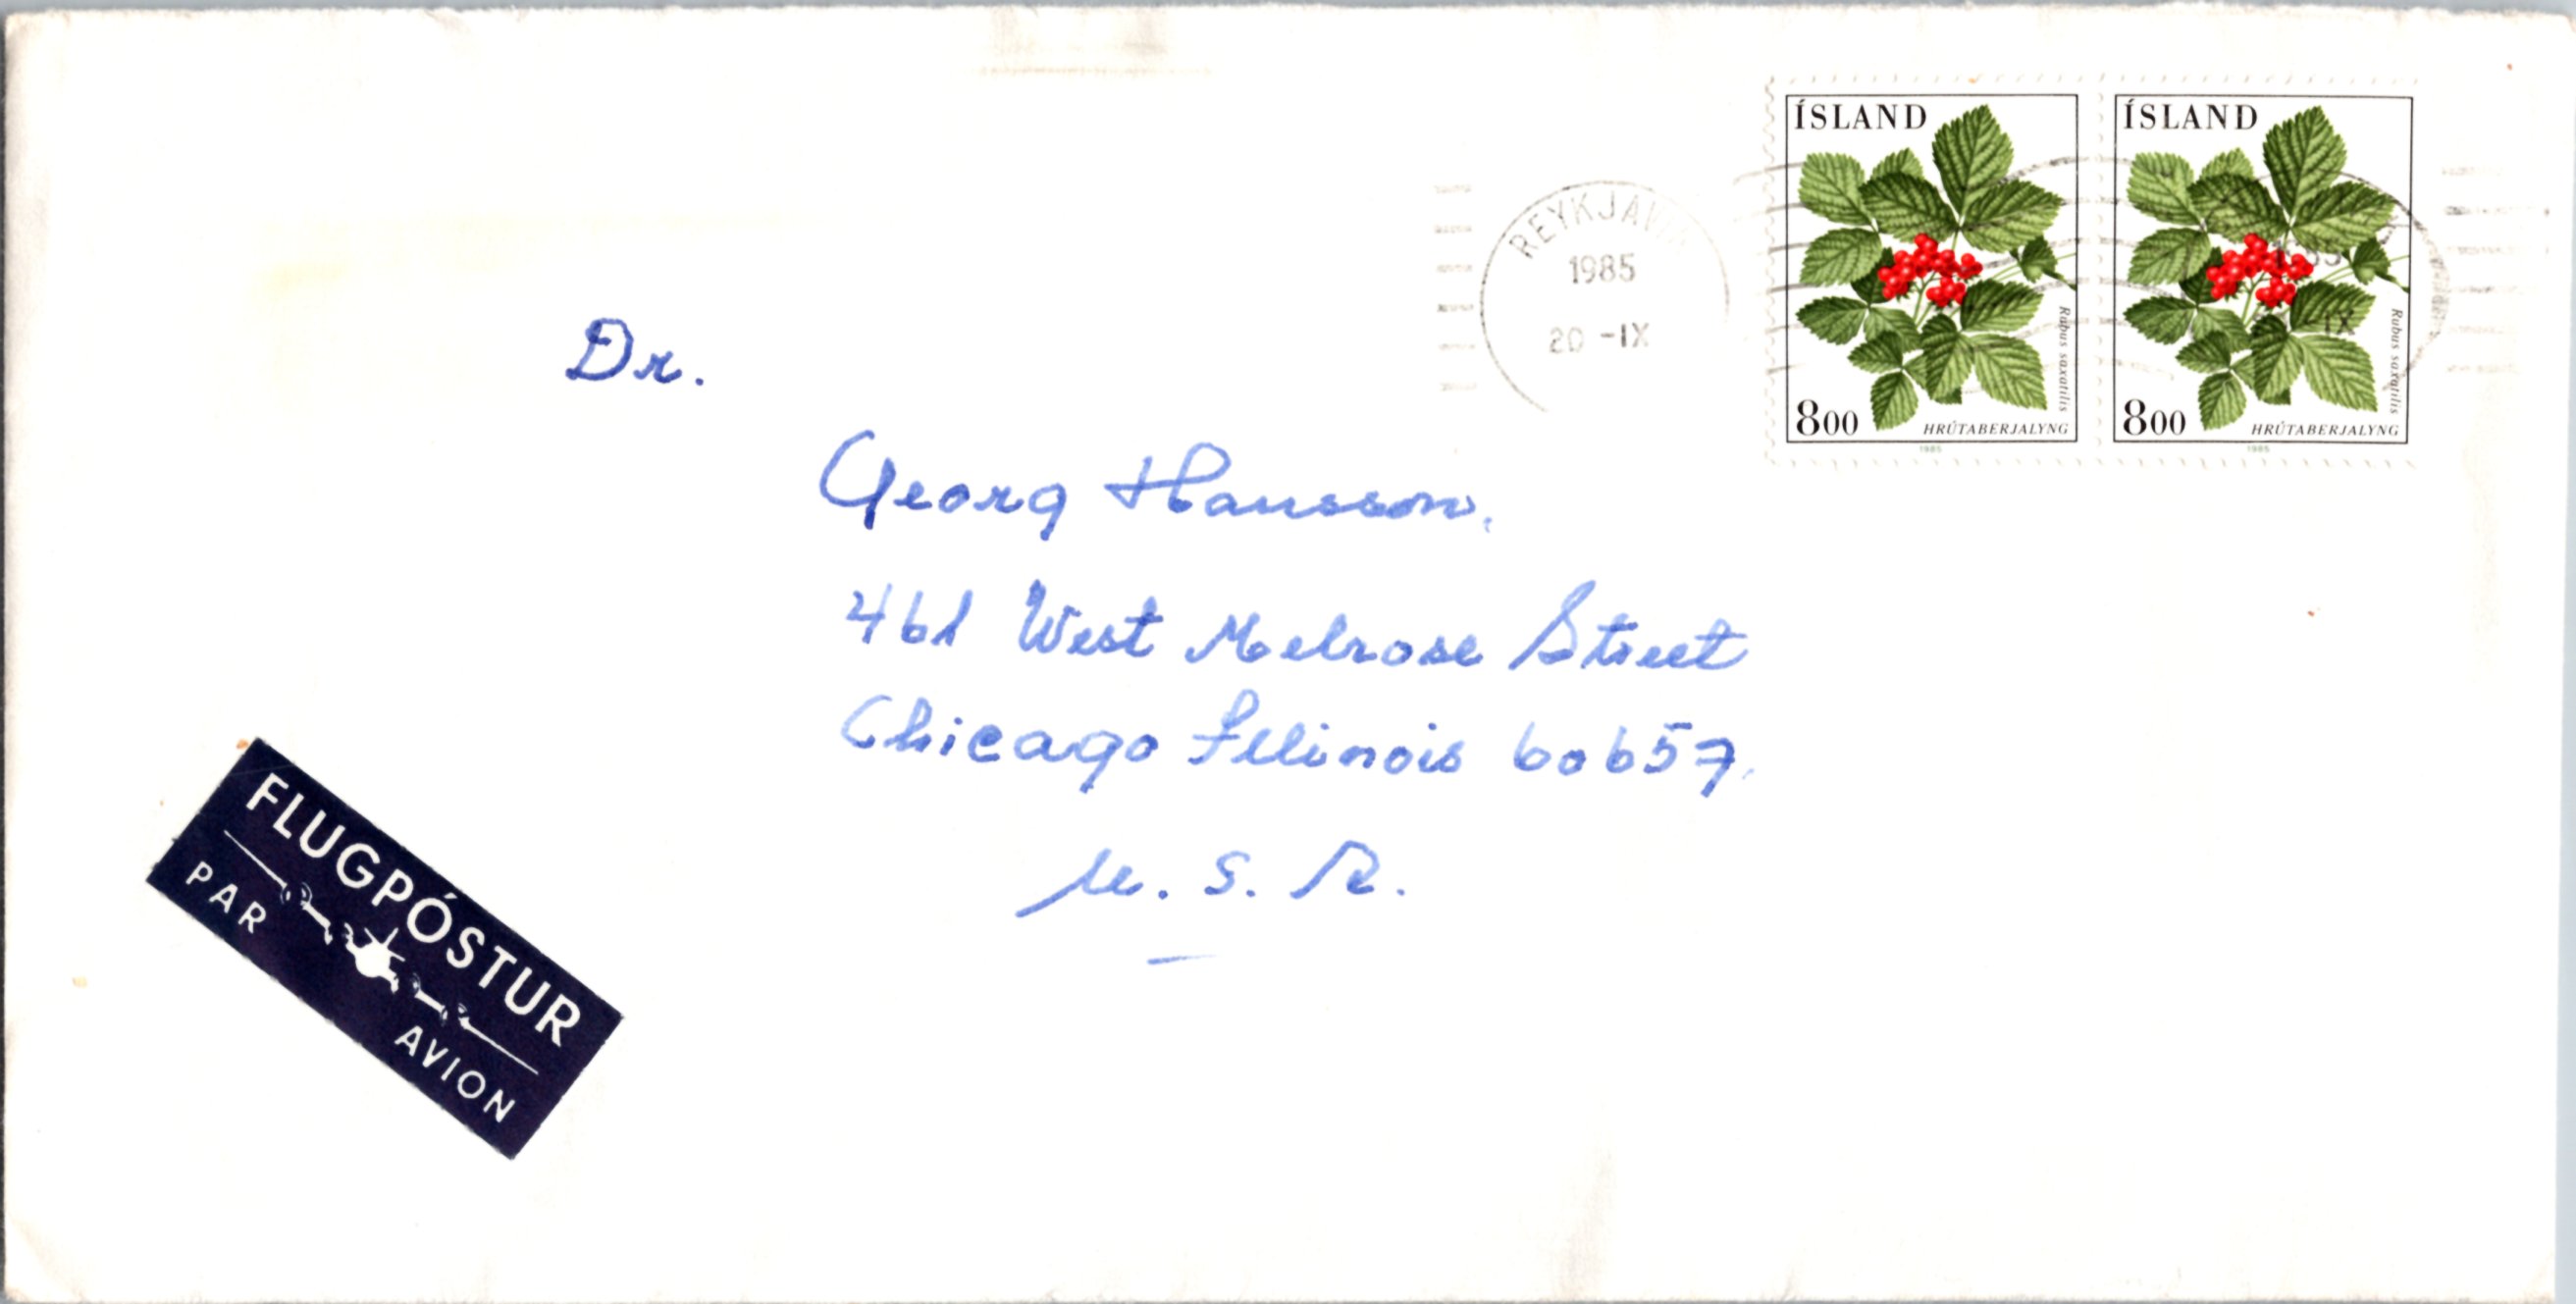 ÍSLAND
Rubus saxatilis
800
HRÚTABERJALYNG
1985
ÍSLAND
Rubus saxatilis
800
HRÚTABERJALYNG
1985
REYKJAVÍK
1985
20 -IX
1985
IX
Dr.
Georg Hansson.
461 West Melrose Street
Chicago Illinois 60657.
U. S. A.
FLUGPÓSTUR
PAR AVION